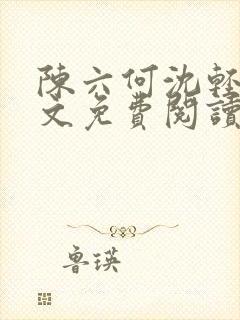 陳六何沈輕
文免費閱讀
魯瑛